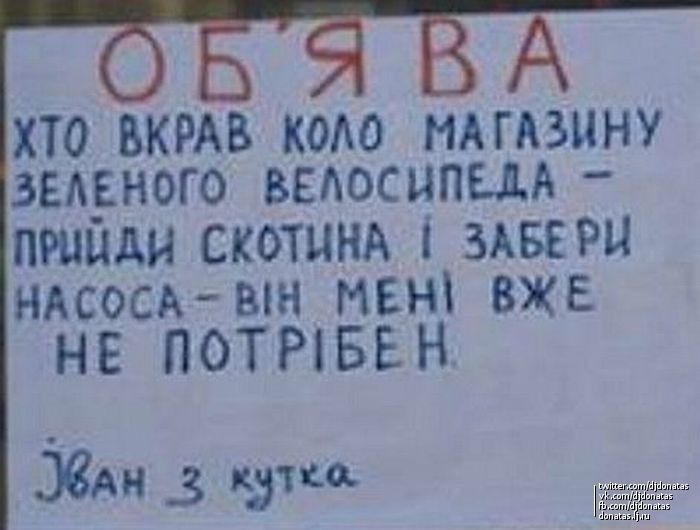 ОБ'ЯВА
ХТО ВКРАВ КОЛО МАГАЗИНУ
ЗЕЛЕНОГО ВЕЛОСИПЕДА –
ПРИЙДИ СКОТИНА І ЗАБЕРИ
НАСОСА – ВІН МЕНІ ВЖЕ
НЕ ПОТРІБЕН
Іван з кутка
twitter.com/djdonatas
vk.com/djdonatas
fb.com/djdonatas
donatas.lj.ru